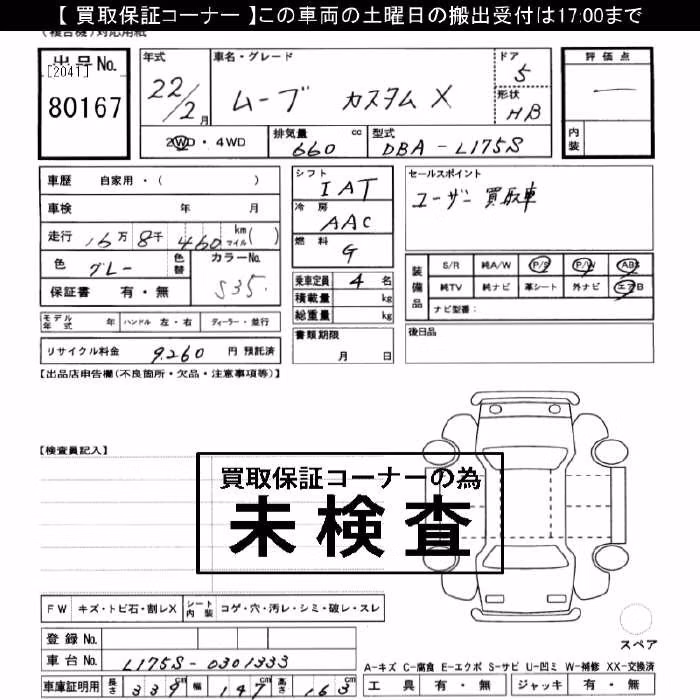 【 買取保証コーナー 】この車両の土曜日の搬出受付は17:00まで
(複合機)対応用紙
出品No.
[2041]
80167
年式
22/2月
車名・グレード
ムーブ カスタム X
ドア
5
形状
HB
評価点
—
内装
2WD・4WD
排気量
660 cc
型式
DBA-L175S
車歴 自家用・( )
車検 年 月
走行 16万8千460 km マイル( )
色 グレー
色替
カラーNo.
S35
保証書 有・無
シフト
IAT
冷房
AAC
燃料
G
乗車定員 4 名
積載量 kg
総重量 kg
セールスポイント
ユーザー買取車
装備品
S/R 純A/W P/S P/W ABS
純TV 純ナビ 革シート 外ナビ エアB
ナビ型番:
モデル年式 年 ハンドル 左・右 ディーラー・並行
リサイクル料金 9,260 円 預託済
書類期限
月 日
後日品
【出品店申告欄(不良箇所・欠品・注意事項等)】
【検査員記入】
買取保証コーナーの為
未検査
FW キズ・トビ石・割レX
シート内装 コゲ・穴・汚レ・シミ・破レ・スレ
スペア
登録No.
車台No. L175S-0301333
車庫証明用 長さ 339 cm 幅 147 cm 高さ 163 cm
A-キズ C-腐食 E-エクボ S-サビ U-凹ミ W-補修 XX-交換済
工具 有・無 ジャッキ 有・無